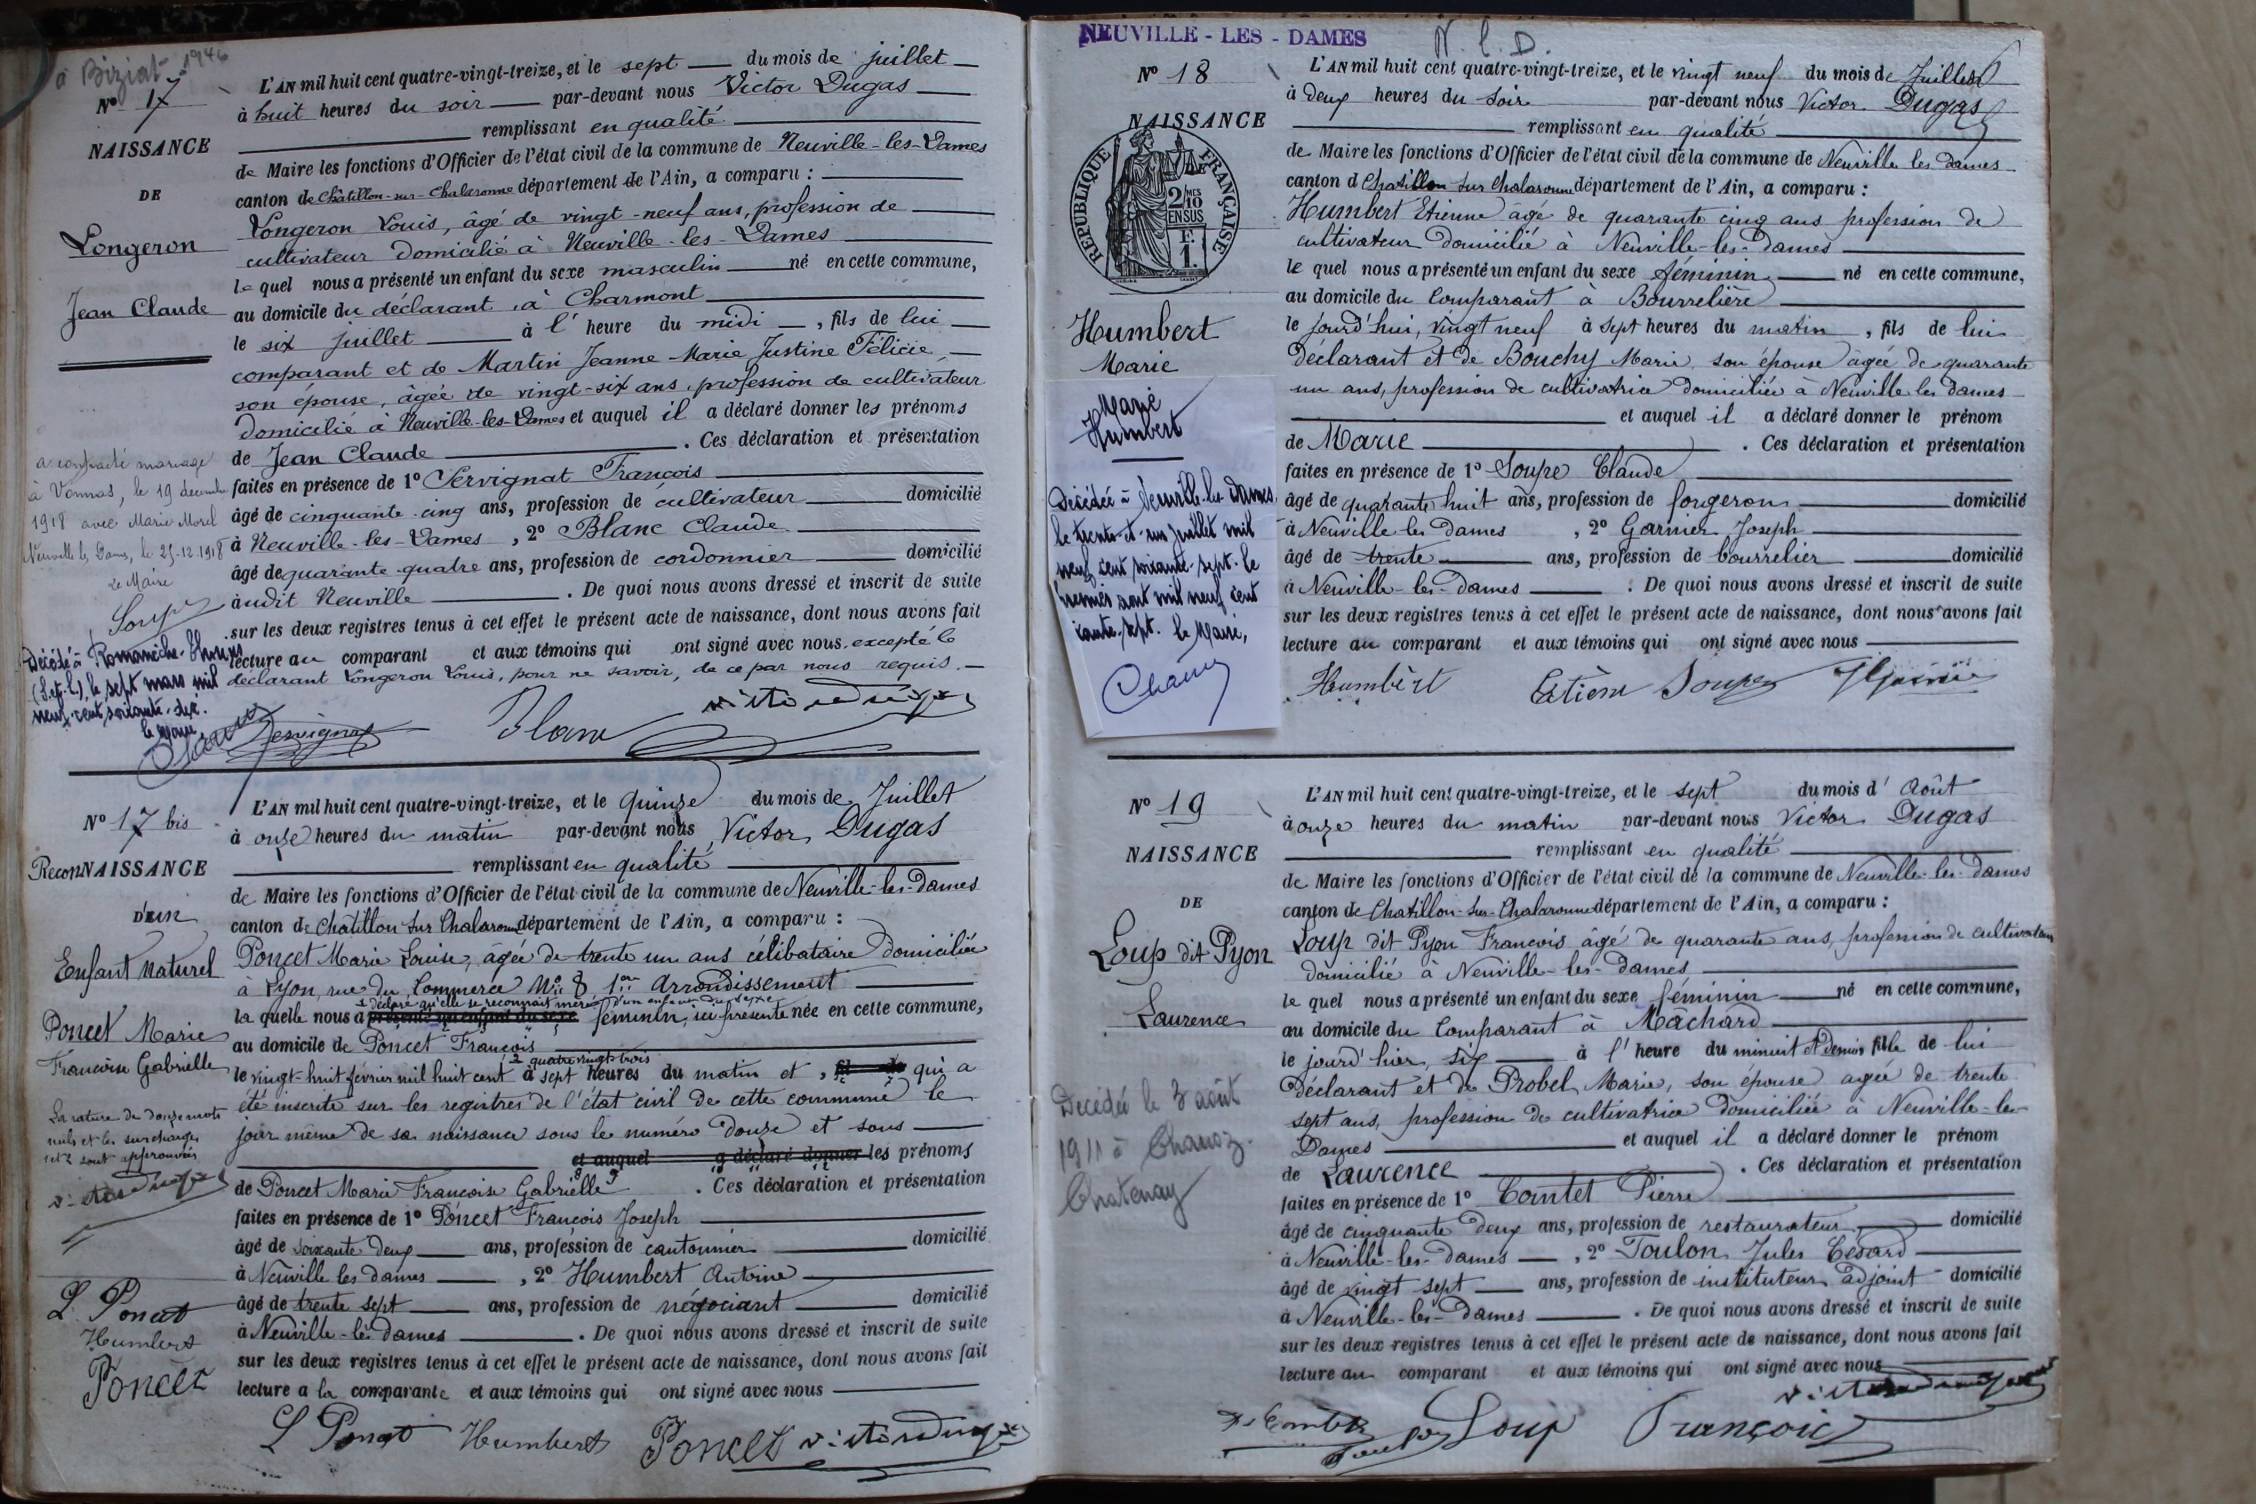 à Biziat 1946
N° 17
NAISSANCE
DE
Longeron
Jean Claude
L'AN mil huit cent quatre-vingt-treize, et le sept du mois de juillet
à huit heures du soir par-devant nous Victor Dugas
remplissant en qualité
de Maire les fonctions d'Officier de l'état civil de la commune de Neuville-les-Dames
canton de Châtillon-sur-Chalaronne département de l'Ain, a comparu :
Longeron Louis, âgé de vingt-neuf ans, profession de
cultivateur domicilié à Neuville-les-Dames
le quel nous a présenté un enfant du sexe masculin né en cette commune,
au domicile du déclarant, à Charmont
le six juillet à l' heure du midi, fils de lui
comparant et de Martin Jeanne-Marie Justine Félicie,
son épouse, âgée de vingt-six ans, profession de cultivateur
domicilié à Neuville-les-Dames et auquel il a déclaré donner les prénoms
de Jean Claude. Ces déclaration et présentation
faites en présence de 1° Servignat François
âgé de cinquante-cinq ans, profession de cultivateur domicilié
à Neuville-les-Dames, 2° Blanc Claude
âgé de quarante-quatre ans, profession de cordonnier domicilié
audit Neuville. De quoi nous avons dressé et inscrit de suite
sur les deux registres tenus à cet effet le présent acte de naissance, dont nous avons fait
lecture au comparant et aux témoins qui ont signé avec nous, excepté le
déclarant Longeron Louis, pour ne savoir, de ce par nous requis.
Servignat Blanc victor dugas
a contracté mariage
à Vonnas, le 19 décembre
1918 avec Marie Morel
Neuville les Dames, le 25-12-1918
Le Maire
Décédé à Romanèche-Thorins
(S.et.L), le sept mars mil
neuf cent soixante-dix.
le Maire
N° 17 bis
ReconNAISSANCE
D'un
Enfant Naturel
Poncet Marie
Françoise Gabrielle
La rature de douze mots
nuls et les surcharges
1 et 2 sont approuvées
victor dugas
L Poncet
Humbert
Poncet
L'AN mil huit cent quatre-vingt-treize, et le quinze du mois de Juillet
à onze heures du matin par-devant nous Victor Dugas
remplissant en qualité
de Maire les fonctions d'Officier de l'état civil de la commune de Neuville-les-Dames
canton de Chatillon sur Chalaronne département de l'Ain, a comparu :
Poncet Marie Louise, âgée de trente un ans célibataire domiciliée
à Lyon, rue du Commerce N° 8 1er Arrondissement
1 déclaré qu'elle se reconnait mère d'un enfant du sexe
la quelle nous a présenté un enfant du sexe féminin, ici présente née en cette commune,
au domicile de Poncet François
2 quatre vingt-trois
le vingt-huit février mil huit cent à sept heures du matin et, fil de qui a
été inscrite sur les registres de l'état civil de cette commune le
jour même de sa naissance sous le numéro douze et sous
et auquel a déclaré donner les prénoms
de Poncet Marie Françoise Gabrielle. Ces déclaration et présentation
faites en présence de 1° Poncet François Joseph
âgé de soixante deux ans, profession de cantonnier domicilié
à Neuville les dames, 2° Humbert Antoine
âgé de trente sept ans, profession de négociant domicilié
à Neuville-les-dames. De quoi nous avons dressé et inscrit de suite
sur les deux registres tenus à cet effet le présent acte de naissance, dont nous avons fait
lecture a la comparante et aux témoins qui ont signé avec nous
L Poncet Humbert Poncet victor dugas
NEUVILLE - LES - DAMES
N. l. D.
N° 18
NAISSANCE
RÉPUBLIQUE FRANÇAISE
2/10 MES EN SUS
F. 1.
Humbert
Marie
Marie
Humbert
Décédée à Neuville-les-Dames
le trente-et-un juillet mil
neuf cent soixante-sept. le
premier août mil neuf cent
soixante-sept. le Maire,
L'AN mil huit cent quatre-vingt-treize, et le vingt neuf du mois de Juillet
à deux heures du soir par-devant nous Victor Dugas
remplissant en qualité
de Maire les fonctions d'Officier de l'état civil de la commune de Neuville les Dames
canton d Chatillon-sur Chalaronne département de l'Ain, a comparu :
Humbert Etienne âgé de quarante cinq ans profession de
cultivateur domicilié à Neuville-les-Dames
le quel nous a présenté un enfant du sexe féminin né en cette commune,
au domicile du Comparant à Bourrelière
le jourd'hui, vingt neuf à sept heures du matin, fils de lui
Déclarant et de Bouchy Marie son épouse âgée de quarante
un ans, profession de cultivatrice domiciliée à Neuville les dames
et auquel il a déclaré donner le prénom
de Marie. Ces déclaration et présentation
faites en présence de 1° Soupe Claude
âgé de quarante huit ans, profession de forgeron domicilié
à Neuville les Dames, 2° Garnier Joseph
âgé de trente ans, profession de bourrelier domicilié
à Neuville-les-Dames. De quoi nous avons dressé et inscrit de suite
sur les deux registres tenus à cet effet le présent acte de naissance, dont nous avons fait
lecture au comparant et aux témoins qui ont signé avec nous
Humbert Etiene Soupe
N° 19
NAISSANCE
DE
Loup dit Pyon
Laurence
Décédée le 3 août
1911 à Chanoz-
Chatenay
L'AN mil huit cent quatre-vingt-treize, et le sept du mois d' Août
à onze heures du matin par-devant nous Victor Dugas
remplissant en qualité
de Maire les fonctions d'Officier de l'état civil de la commune de Neuville-les-Dames
canton de Chatillon-sur-Chalaronne département de l'Ain, a comparu :
Loup dit Pyon François âgé de quarante ans, profession de cultivateur
domicilié à Neuville-les-Dames
le quel nous a présenté un enfant du sexe féminin né en cette commune,
au domicile du Comparant à Mâchard
le jourd'hier, six à l' heure du minuit et demie, fille de lui
Déclarant et de Probel Marie, son épouse agée de trente
sept ans, profession de cultivatrice domiciliée à Neuville-les-
Dames et auquel il a déclaré donner le prénom
de Laurence. Ces déclaration et présentation
faites en présence de 1° Comtet Pierre
âgé de cinquante deux ans, profession de restaurateur domicilié
à Neuville-les-Dames, 2° Toulon Jules Césard
âgé de vingt sept ans, profession de instituteur adjoint domicilié
à Neuville-les-Dames. De quoi nous avons dressé et inscrit de suite
sur les deux registres tenus à cet effet le présent acte de naissance, dont nous avons fait
lecture au comparant et aux témoins qui ont signé avec nous
victor dugas
Comtet Toulon Loup François